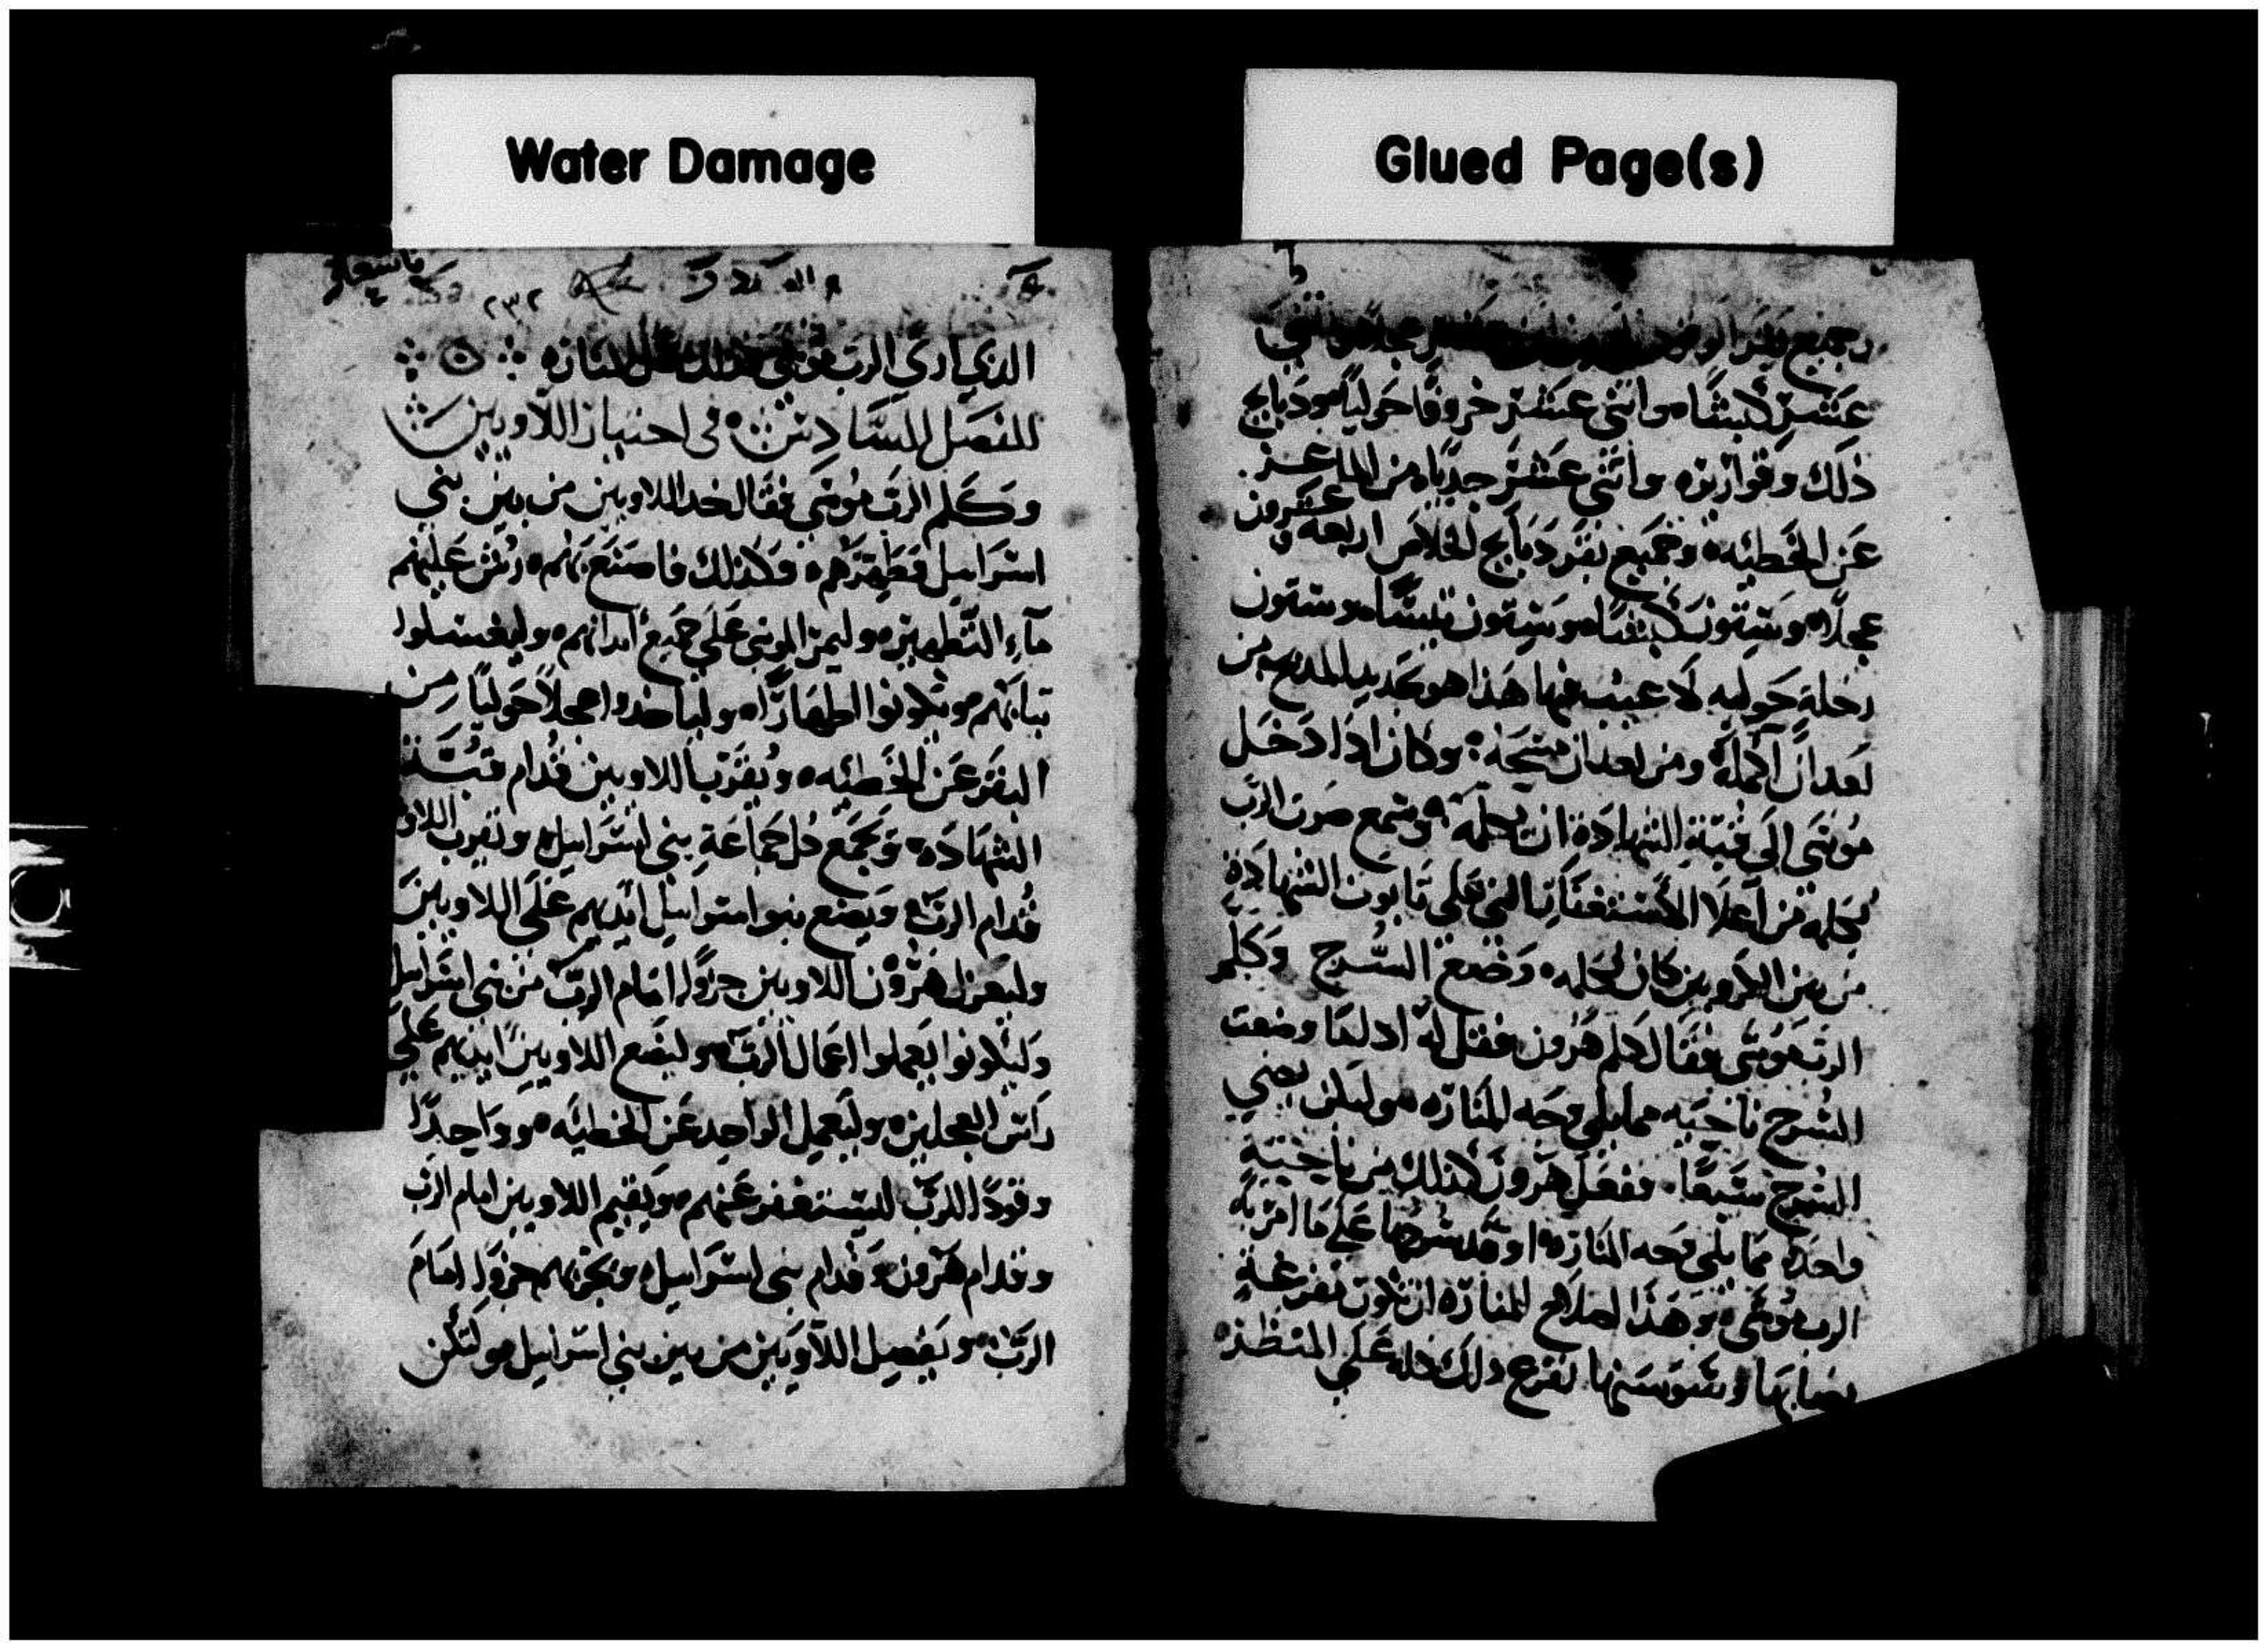 Water Damage
Glued Page(s)
وجميع بقر
عجلا واثني
عشر كبشًا واثني عشر خروفًا حوليًا ودبايح
ذلك وقوارىره واثني عشر جديًا من الماعز
عن الخطيه وجميع بقر دبايح الخلاص اربعه وعشرون
عجلًا وستون كبشًا وستون تيسًا وستون
رخلة حوليه لا عيب فيها هذا هو تجديد المدبح من
بعد ان اكمله ومن بعد ان مسحه وكان ادا دخل
موسى الى قبة الشهادة ان يكلمه وسمع صوت الرب
يكلمه من اعلا الاستغفار التي على تابوت الشهادة
من بين الكروبين كان يكلمه وضع السرج وكلم
الرب موسى فقال كلم هرون فقل له ادا ما وضعت
السرج ناحيه مما يلي وجه المناره وليكن يضي
السرج سبعًا ففعل هرون كذلك من ناحية
واحدة مما يلي وجه المنارة اوقد سرجها على ما امر به
الرب موسى وهذا اصلاح المنارة ان تكون مفرغة
قصابها وسوسنها تفرع ذلك كله على المنظر
٢٣٢
الذي ارى الرب موسى كذلك عمل المناره
الفصل السادس في اختيار اللاويين
وكلم الرب موسى فقال خد اللاويين من بين بني
اسراييل فطهرهم وكذلك فاصنع بهم رش عليهم
ماء التطهير وليمر الموسى على جميع ابدانهم وليغسلوا
تيابهم ويكونوا اطهارًا وليأخدوا عجلًا حوليًا من
البقر عن الخطيه ويقرب اللاويين قدام قبة
الشهاده وتجمع كل جماعة بني اسراييل وتقرب اللاو
قدام الرب ويضع بنو اسراييل ايديهم على اللاويين
وليعزل هرون اللاويين جزوًا امام الرب من بني اسراييل
وليكونوا يعملوا اعمال الرب وليضع اللاويين ايديهم على
راس العجلين وليعمل الواحد عن الخطيه وواحدًا
وقودًا للرب ليستغفر عنهم ويقيم اللاويين امام الرب
وقدام هرون وقدام بني اسراييل ويجزيهم جزوًا امام
الرب ويفصل اللاويين من بين بني اسراييل وليكن